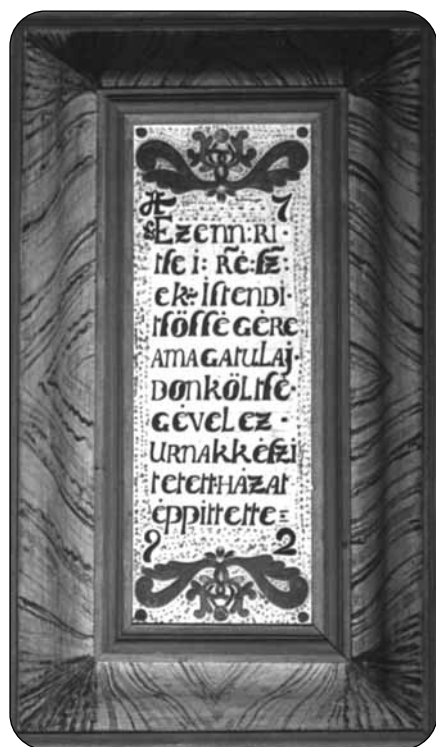 Æ 7
EZenn: RI-
tſei: RĒ: ſZ:
ek: İſtenDI-
tſöſſÉGÉRE
AMAGATULAJ-
DONKÖLtſÉ-
GÉVEL EZ-
URNAKKÉſZI
tetettHÁZAt
ÉPPIttEttE=
9 2